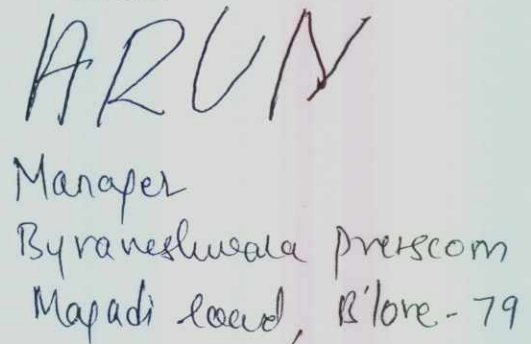 ARUN
Manager
Byraveshwara
Magadi Road, B'lore - 79